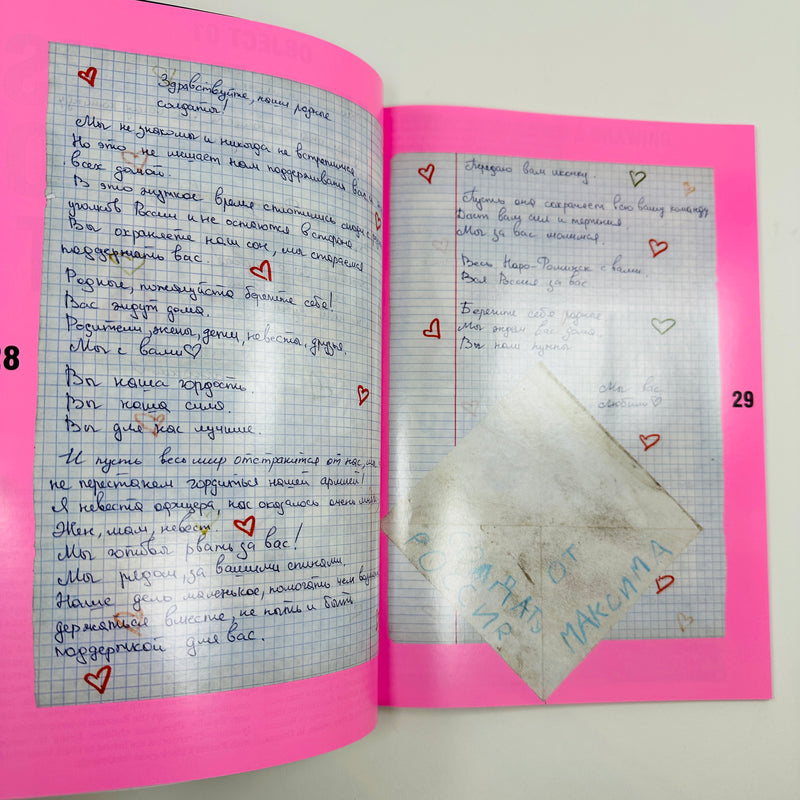 Здравствуйте, наши родные
солдаты!
Мы не знакомы и никогда не встретимся
Но это не мешает нам поддерживать вас и
всех домой.
В это жуткое время сплотились люди с
уголков России и не остаются в стороне.
Вы охраняете наш сон, мы стараемся
поддержать вас.
Родные, пожалуйста берегите себя!
Вас ждут дома.
Родители, жены, дети, невесты, друзья.
Мы с вами♡
Вы наша гордость.
Вы наша сила.
Вы для нас лучшие.
И пусть весь мир отстранится от нас,
не перестанем гордиться нашей армией!
Я невеста офицера, нас оказалось очень
Жен, мам, невест.
Мы готовы рвать за вас!
Мы рядом, за вашими спинами.
Наше дело маленькое, помогать чем
держаться вместе, не ныть и быть
поддержкой для вас.
28
Передаю вам иконку.
Пусть она сохраняет всю вашу команду
Даст вам сил и терпения.
Мы за вас молимся.
Весь Наро-Фоминск с вами.
Вся Россия за вас
Берегите себя родные
Мы ждем вас дома
Вы нам нужны
Мы вас
любим♡
29
РОССИЯ
ОТ
МАКСИМА